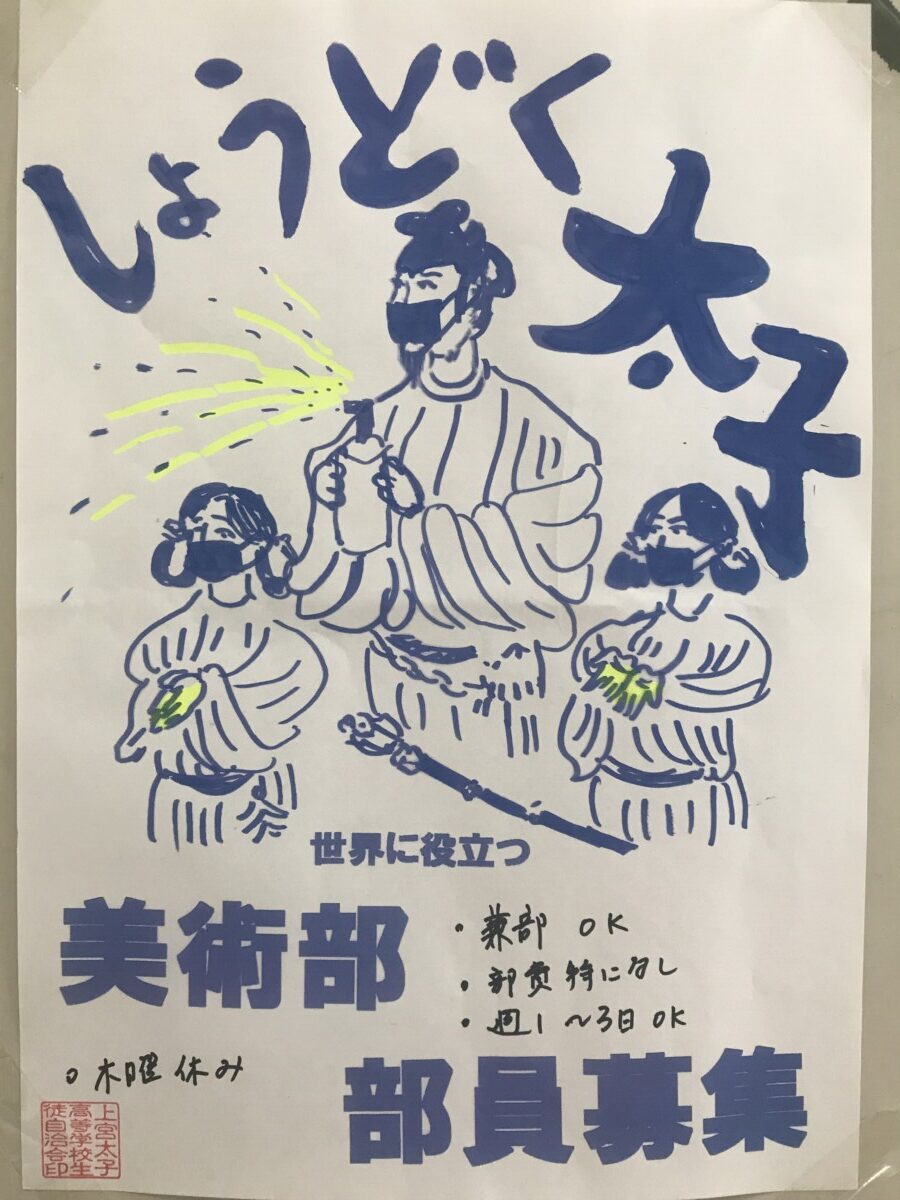 しょうどく太子
世界に役立つ
美術部
・兼部 OK
・部費特になし
・週1〜3日OK
○木曜休み
部員募集
上宮太子
高等学校生
徒自治会印